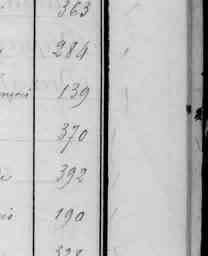 363
284
139
370
392
190